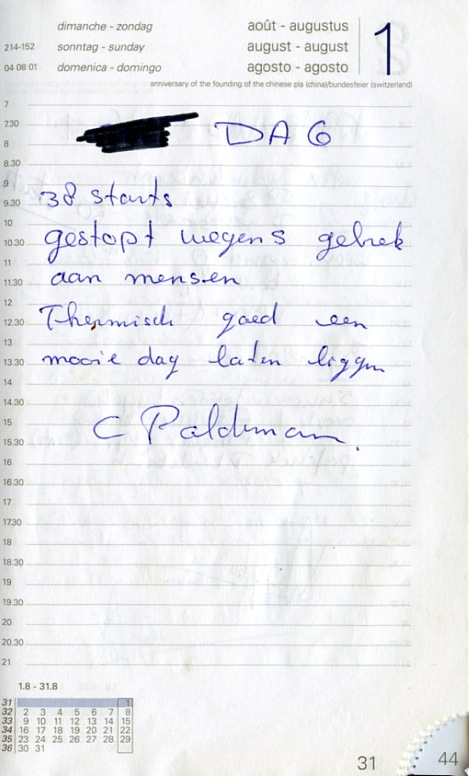 dimanche - zondag
sonntag - sunday
domenica - domingo
214-152
04 08 01
août - augustus
august - august
agosto - agosto
1
anniversary of the founding of the chinese pla (china)/bundesfeier (switzerland)
DAG
38 starts
gestopt wegens gebrek
aan mensen
Thermisch goed een
mooie dag laten liggen
C
7
7.30
8
8.30
9
9.30
10
10.30
11
11.30
12
12.30
13
13.30
14
14.30
15
15.30
16
16.30
17
17.30
18
18.30
19
19.30
20
20.30
21
1.8 - 31.8
31 1
32 2 3 4 5 6 7 8
33 9 10 11 12 13 14 15
34 16 17 18 19 20 21 22
35 23 24 25 26 27 28 29
36 30 31
31
44